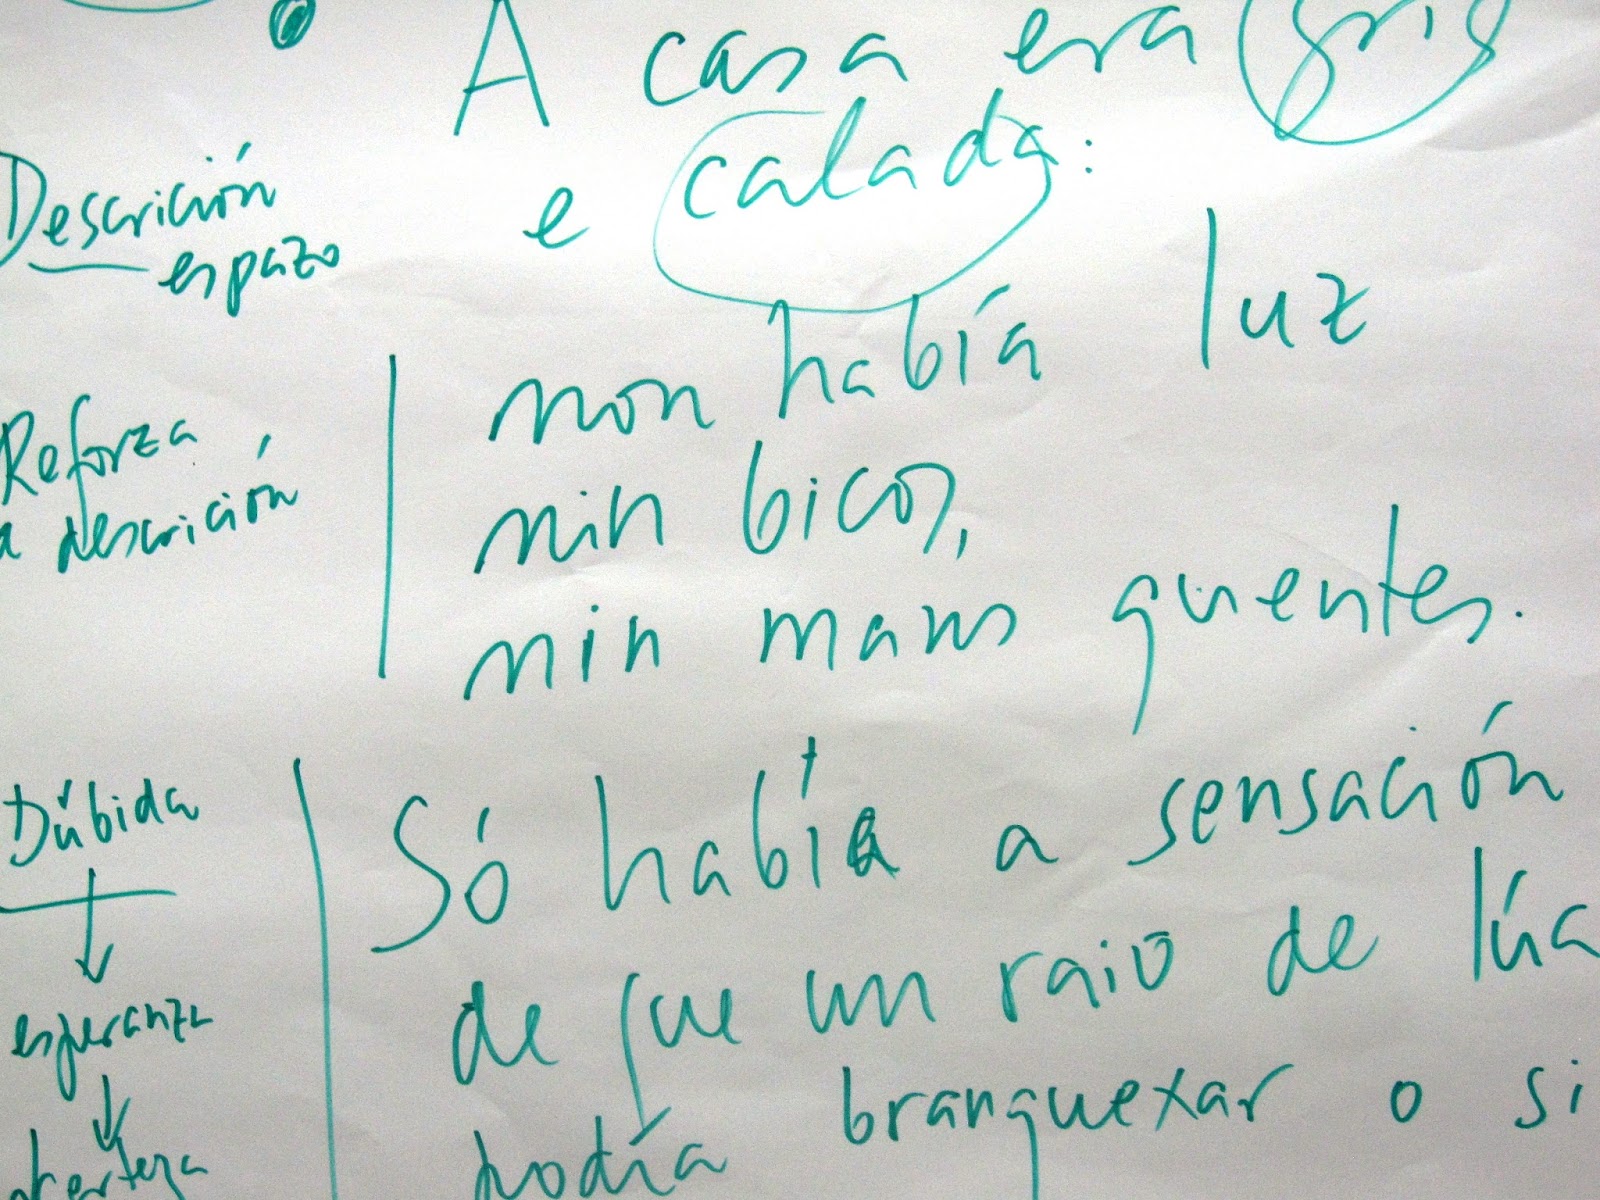 A casa era gris
e calada:
Descrición
espazo
non había luz
nin bicos,
nin mans quentes.
Reforza
a descrición
Só había a sensación
de que un raio de lúa
podía branquexar o si
Dúbida
esperanza